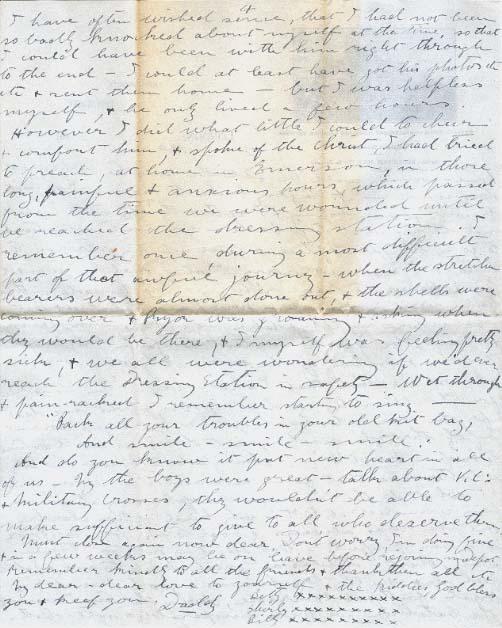 4
I have often wished since, that I had not been
so badly knocked about myself at the time, so that
I could have been with him right through
to the end – I could at least have got his photos etc
etc & sent them home – but I was helpless
myself, & he only lived a few hours.
However I did what little I could to cheer
& comfort him, & spoke of the Christ, I had tried
to preach, at home in Emerson, in those
long, painful & anxious hours, which passed
from the time we were wounded until
we reached the dressing station. I
remember once, during a most difficult
part of that awful journey – when the stretcher
bearers were almost done out, & the shells were
coming over & Pryor was groaning & asking when
they would be there, & I myself was feeling pretty
sick, & we all were wondering if we'd ever
reach the dressing station in safety – Wet through
& pain-racked I remember starting to sing —
"Pack all your troubles in your old kit bag,
And smile – smile – smile".
And do you know it put new heart in all
of us – My the boys were great – talk about V.C.s
& Military Crosses, they wouldn't be able to
make sufficient to give to all who deserve them
Must close again now dear. Dont worry, I'm doing fine
& in a few weeks may be on leave before rejoining depot.
Remember kindly to all the friends & thank them all etc
My dear – dear love to yourself & the kiddies God bless
you & keep you. Daddy
Betty xxxxxxxxx
Shirly xxxxxxxxx
Bill xxxxxxxxx